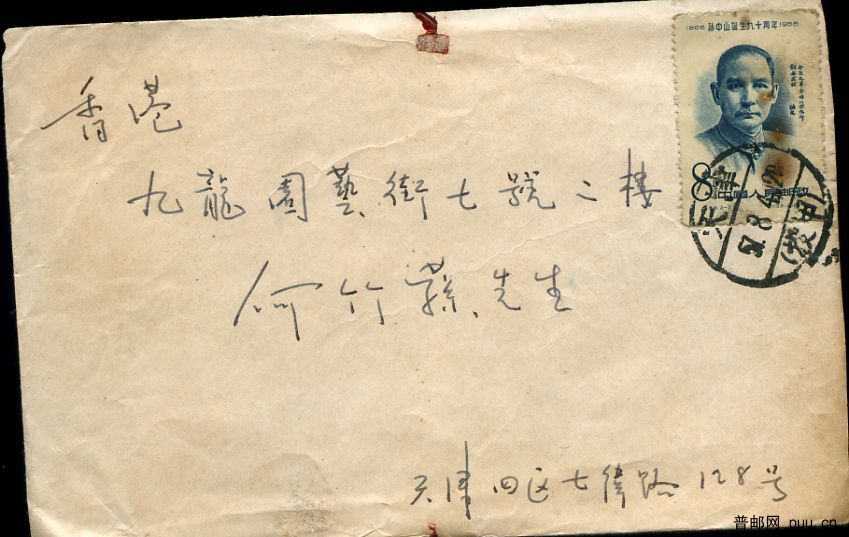 香港
九龍園藝街七號二樓
何竹蓀先生
天津四区七緯路128号
1866 孙中山誕生九十周年 1956
8
中國人民邮政
天津
57.8.4.20
普邮网 puu.cn